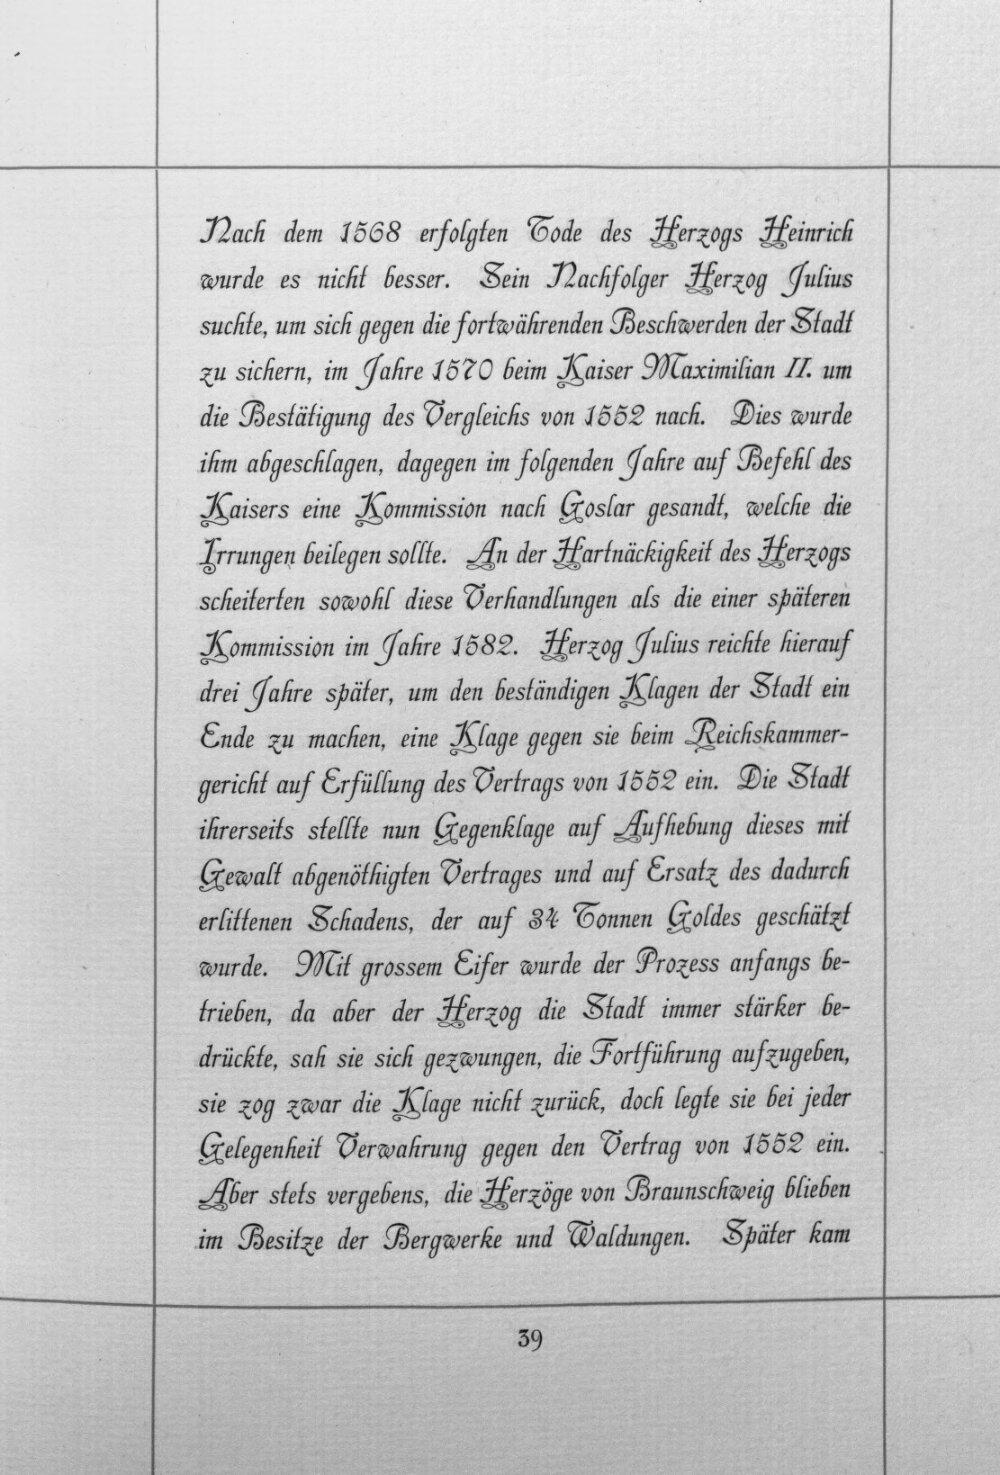 Nach dem 1568 erfolgten Tode des Herzogs Heinrich
wurde es nicht besser. Sein Nachfolger Herzog Julius
suchte, um sich gegen die fortwährenden Beschwerden der Stadt
zu sichern, im Jahre 1570 beim Kaiser Maximilian II. um
die Bestätigung des Vergleichs von 1552 nach. Dies wurde
ihm abgeschlagen, dagegen im folgenden Jahre auf Befehl des
Kaisers eine Kommission nach Goslar gesandt, welche die
Irrungen beilegen sollte. An der Hartnäckigkeit des Herzogs
scheiterten sowohl diese Verhandlungen als die einer späteren
Kommission im Jahre 1582. Herzog Julius reichte hierauf
drei Jahre später, um den beständigen Klagen der Stadt ein
Ende zu machen, eine Klage gegen sie beim Reichskammer-
gericht auf Erfüllung des Vertrags von 1552 ein. Die Stadt
ihrerseits stellte nun Gegenklage auf Aufhebung dieses mit
Gewalt abgenöthigten Vertrages und auf Ersatz des dadurch
erlittenen Schadens, der auf 34 Tonnen Goldes geschätzt
wurde. Mit grossem Eifer wurde der Prozess anfangs be-
trieben, da aber der Herzog die Stadt immer stärker be-
drückte, sah sie sich gezwungen, die Fortführung aufzugeben,
sie zog zwar die Klage nicht zurück, doch legte sie bei jeder
Gelegenheit Verwahrung gegen den Vertrag von 1552 ein.
Aber stets vergebens, die Herzöge von Braunschweig blieben
im Besitze der Bergwerke und Waldungen. Später kam
39